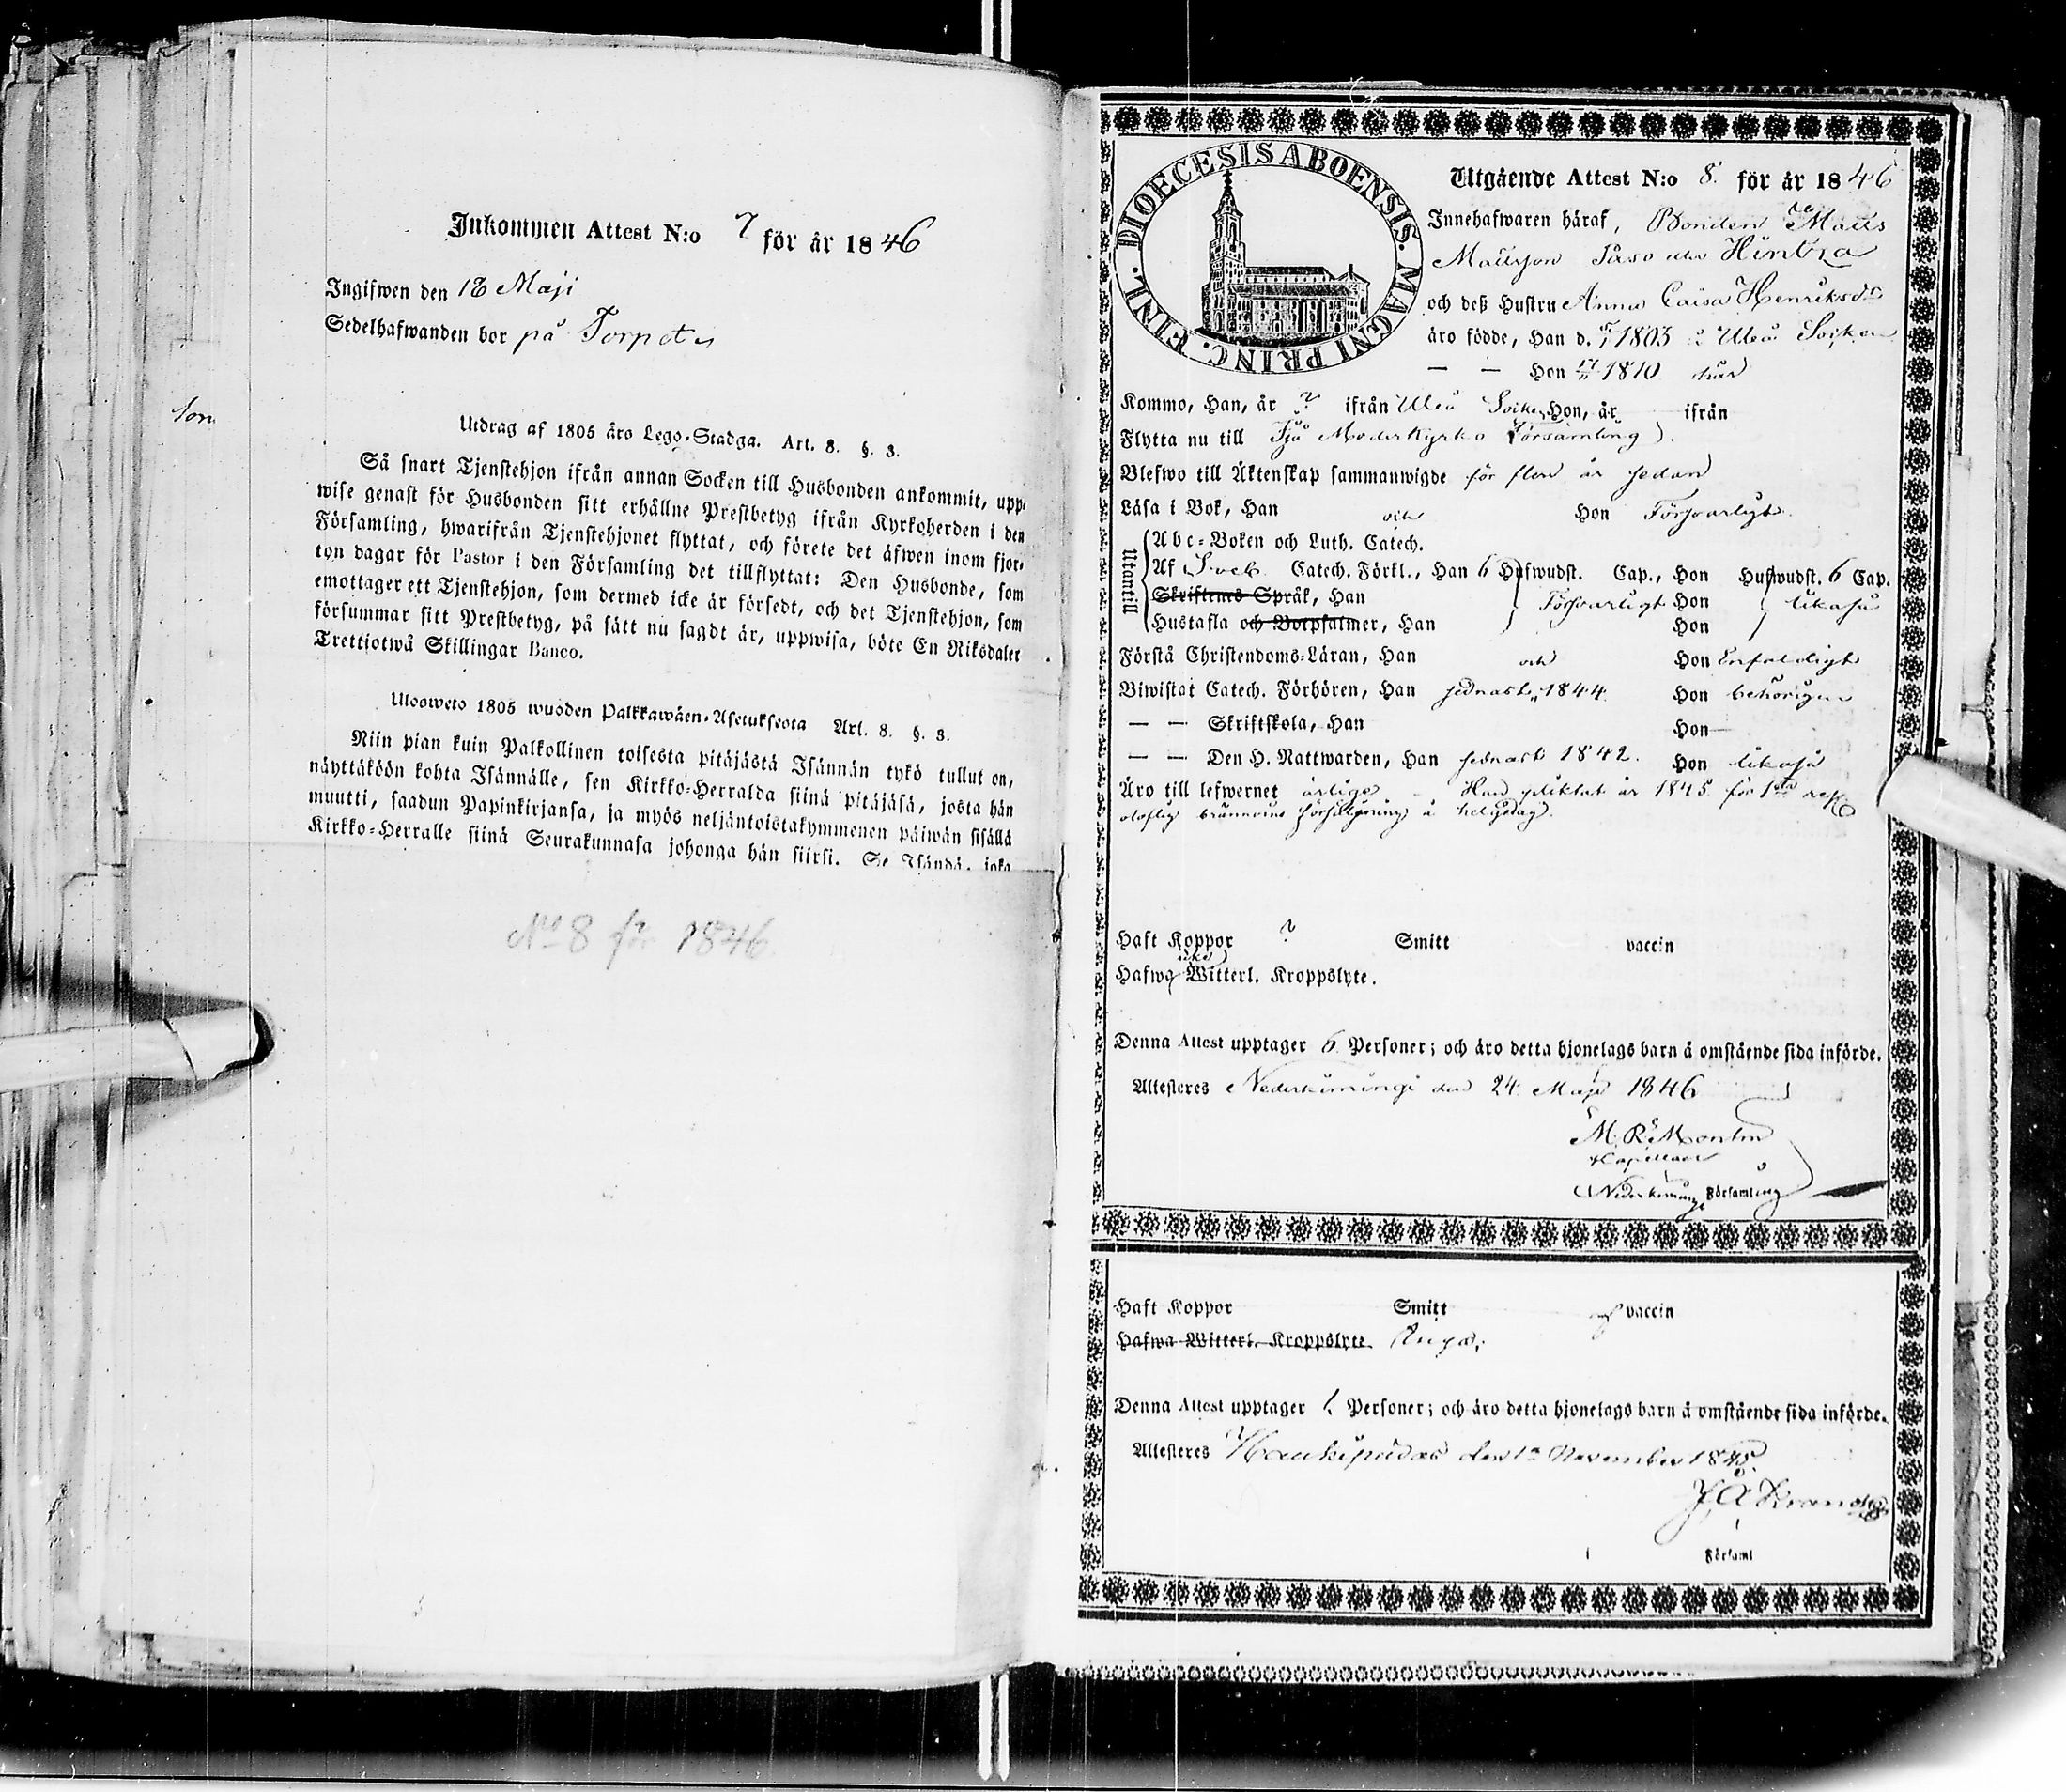 Inkommen Attest N:o 7 för år 1846
Ingifwen den 18 Maji
Sedelhafwanden bor på Torpet
Son
Utdrag af 1805 års Lego-Stadga. Art. 8. §. 3.
Så snart Tjenstehjon ifrån annan Socken till Husbonden ankommit, upp-
wise genast för Husbonden sitt erhållne Prestbetyg ifrån Kyrkoherden i den
Församling, hwarifrån Tjenstehjonet flyttat, och förete det äfwen inom fjor-
ton dagar för Pastor i den Församling det tillflyttat: Den Husbonde, som
emottager ett Tjenstehjon, som dermed icke är försedt, och det Tjenstehjon, som
försummar sitt Prestbetyg, på sätt nu sagdt är, uppwisa, böte En Riksdaler
Trettiotwå Skillingar Banco.
Ulooweto 1805 wuoden Palkkawäen-Asetuksesta Art. 8. §. 3.
Niin pian kuin Palkollinen toisesta pitäjästä Isännän tykö tullut on,
näyttäköön kohta Isännälle, sen Kirkko-Herralda siinä pitäjäsä, josta hän
muutti, saadun Papinkirjansa, ja myös neljäntoistakymmenen päiwän sisällä
Kirkko-Herralle siinä Seurakunnasa johonga hän siirsi. Se Isändä, joka
No 8 för 1846
DIOECESIS ABOENSIS. MAGNI PRINC. FINL.
Utgående Attest N:o 8. för år 1846
Innehafwaren häraf, Bonden Matts
Mattsson Hintza
och deß Hustru Anna Caisa Henriksdr
äro födde, Han d. 1803 i Uleå Socken
— — Hon 1810 här
Kommo, Han, år ? ifrån Uleå Socken Hon, år ifrån
Flytta nu till Ijo Moderkyrko Församling.
Blefwo till Äktenskap sammanwigde för flere år sedan
Läsa i Bok, Han och Hon Försvarligt.
Utantill
Abc-Boken och Luth. Catech.
Af Sveb. Catech. Förkl., Han 6 Hufwudst. Cap., Hon Hufwudst. 6 Cap.
Skriftenes Språk, Han Försvarligt Hon likaså
Hustafla och Botpsalmer, Han Hon
Förstå Christendoms-Läran, Han och Hon Enfaldigt
Biwistat Catech. Förhören, Han sednast 1844. Hon behörigen
— — Skriftskola, Han Hon
— — Den H. Nattwarden, Han sednast 1842. Hon likaså
Äro till lefwernet ärlige - Han pliktat år 1845 för 1sta resan
olaflig brännvins försäljning å helgedag.
Haft Koppor ? Smitt vaccin
icke
Hafwa Witterl. Kroppslyte.
Denna Attest upptager 6 Personer; och äro detta hjonelags barn å omstående sida införde.
Attesteres Nederkiimingi den 24 Maji 1846
Capellan
Nederkiimingi Församling
Haft Koppor Smitt vaccin
Hafwa Witterl. Kroppslyte
Denna Attest upptager 1 Personer; och äro detta hjonelags barn å omstående sida införde.
Attesteres Haukipudas den 1a November 1845
Församl